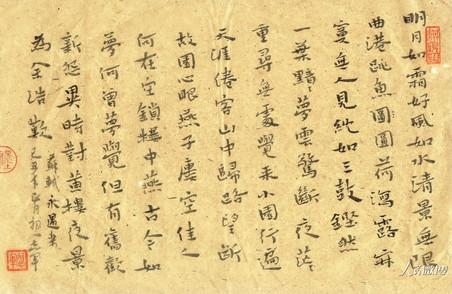 明月如霜好風如水清景無限
曲港跳魚圓圓荷瀉露寂
寞無人見紞如三鼓鏗然
一葉黯黯夢雲驚斷夜茫
重尋無處覺來小園行遍
天涯倦客山中歸路望斷
故園心眼燕子樓空佳人
何在空鎖樓中燕古今如
夢何曾夢覺但有舊歡
新怨異時對黃樓夜景
為余浩歎
蘇軾永遇樂